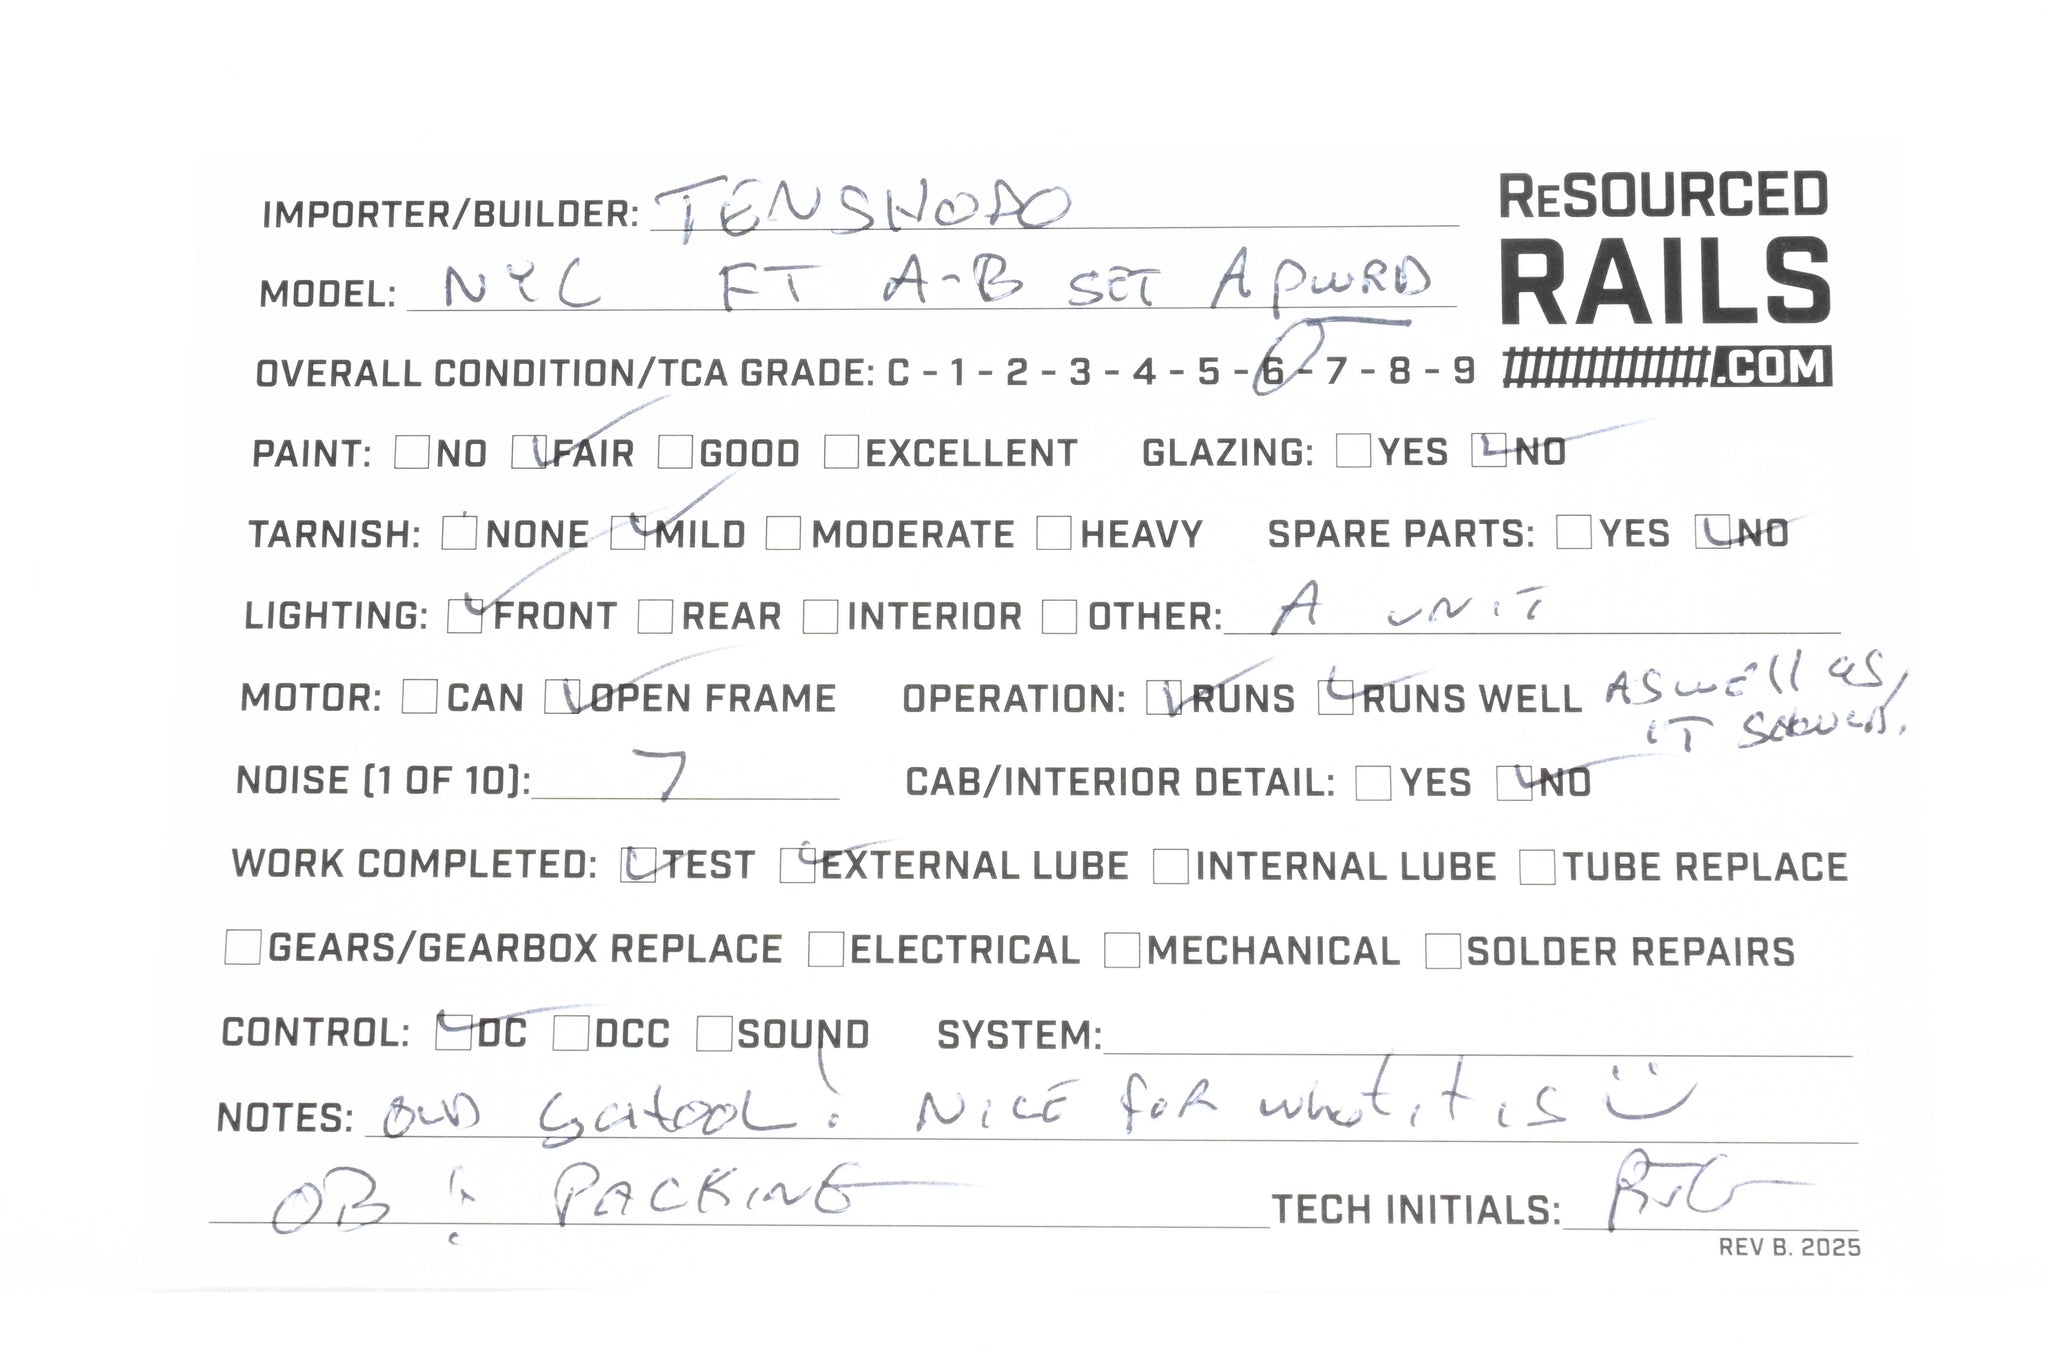 IMPORTER/BUILDER: TENSHODO
RESOURCED
RAILS
.COM
MODEL: NYC FT A-B SET A PWRD
OVERALL CONDITION/TCA GRADE: C - 1 - 2 - 3 - 4 - 5 - 6 - 7 - 8 - 9
PAINT: NO FAIR GOOD EXCELLENT GLAZING: YES NO
TARNISH: NONE MILD MODERATE HEAVY SPARE PARTS: YES NO
LIGHTING: FRONT REAR INTERIOR OTHER: A UNIT
MOTOR: CAN OPEN FRAME OPERATION: RUNS RUNS WELL AS WELL AS
IT SHOULD.
NOISE (1 OF 10): 7 CAB/INTERIOR DETAIL: YES NO
WORK COMPLETED: TEST EXTERNAL LUBE INTERNAL LUBE TUBE REPLACE
GEARS/GEARBOX REPLACE ELECTRICAL MECHANICAL SOLDER REPAIRS
CONTROL: DC DCC SOUND SYSTEM:
NOTES: OLD SCHOOL! NICE FOR what it is
OB & PACKING TECH INITIALS:
REV B. 2025